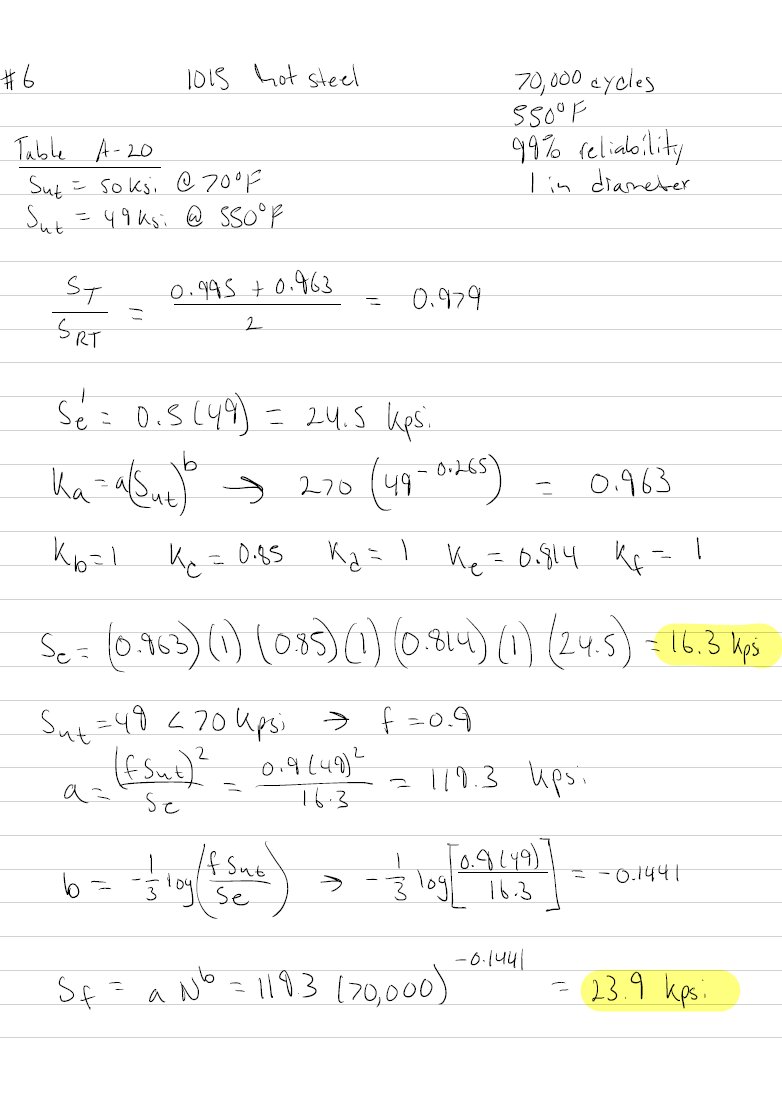 #6 1015 hot steel 70,000 cycles
550°F
99% reliability
1 in diameter
Table A-20
Sut = 50 Ksi @ 70°F
Sut = 49 Ksi @ 550°F
S_T / S_RT = (0.995 + 0.963) / 2 = 0.979
Se' = 0.5 (49) = 24.5 kpsi
Ka = a(Sut)^b → 270 (49^-0.265) = 0.963
Kb = 1 Kc = 0.85 Kd = 1 Ke = 0.814 Kf = 1
Se = (0.963)(1)(0.85)(1)(0.814)(1)(24.5) = 16.3 kpsi
Sut = 49 < 70 Kpsi → f = 0.9
a = (f Sut)^2 / Se = 0.9 (49)^2 / 16.3 = 119.3 kpsi
b = -1/3 log(f Sut / Se) → -1/3 log[0.9(49) / 16.3] = -0.1441
Sf = a N^b = 119.3 (70,000)^-0.1441 = 23.9 kpsi